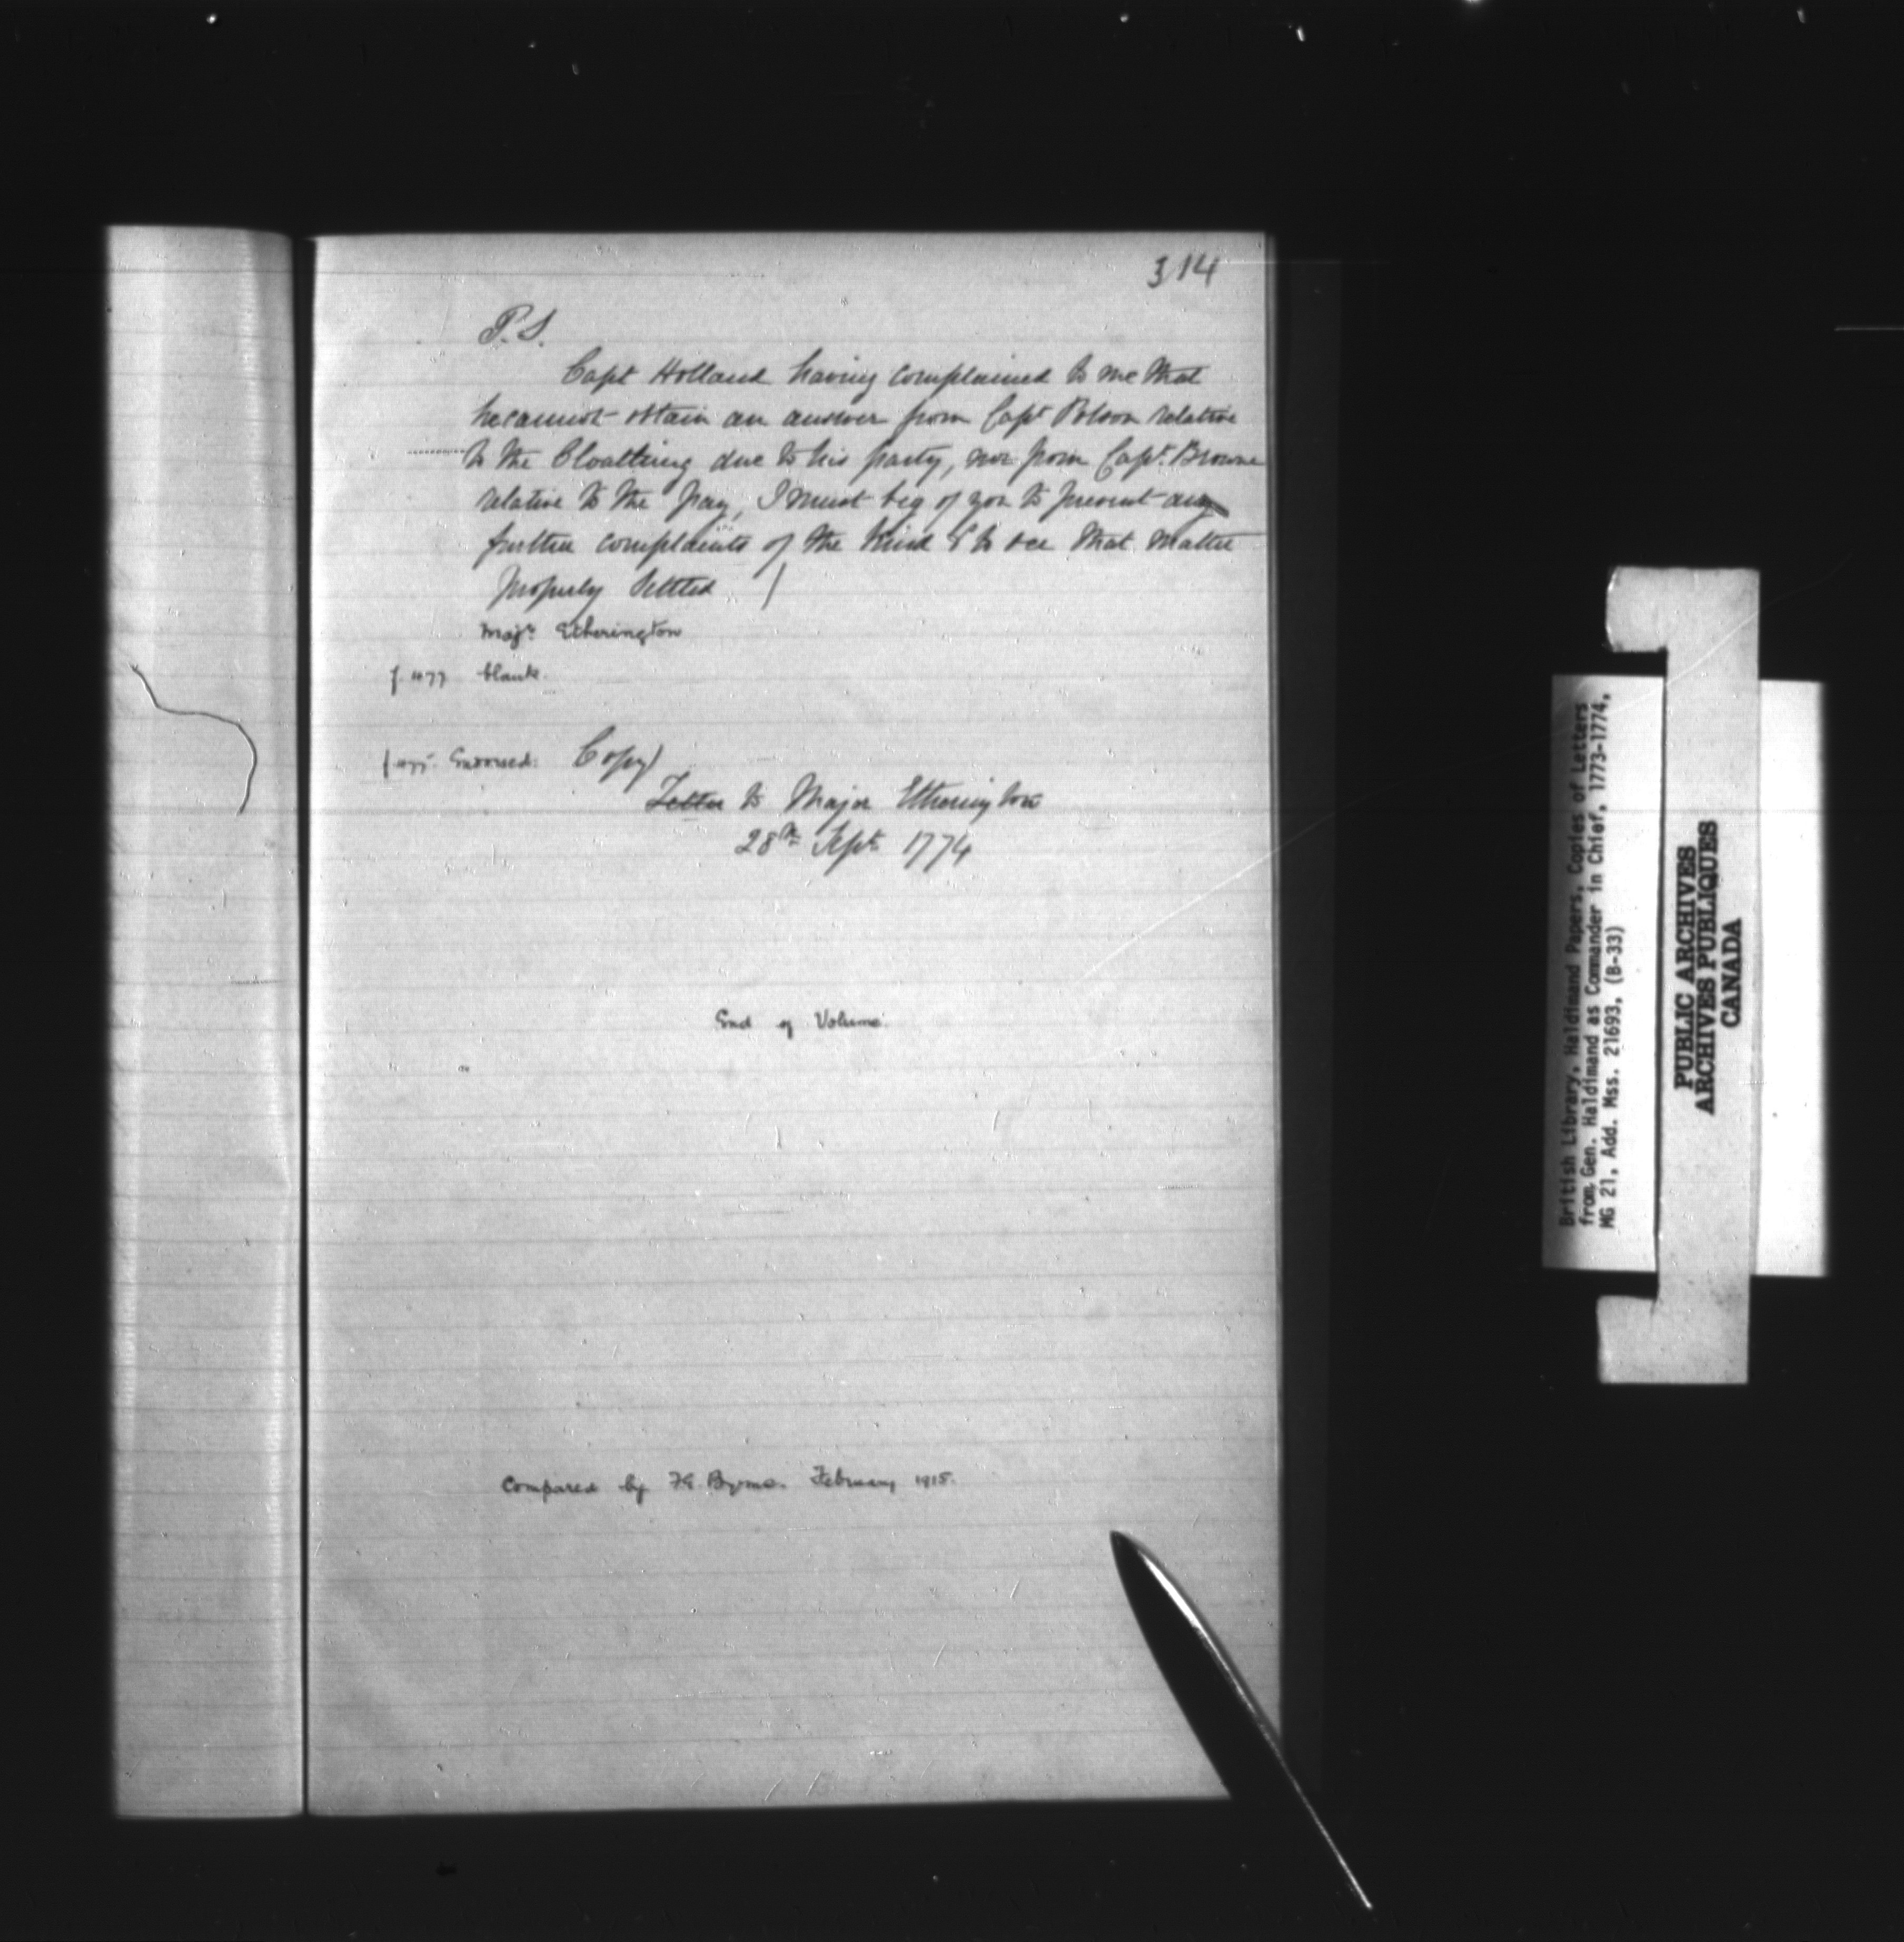 314
P.S.
Capt Holland having complained to me that
he cannot obtain an answer from Capt Polson relative
to the Cloathing due to his party, nor from Capt. Browne
relative to the pay, I must beg of you to prevent any
further complaints of the Kind & to see that matter
properly settled /
Majr. Etherington
blank.
Endorsed: Copy)
Letter to Major Etherington
28th Sept. 1774
End of Volume.
Compared by F.G. Byrne. February 1915.
British Library, Haldimand Papers, Copies of Letters
from Gen. Haldimand as Commander in Chief, 1773-1774,
MG 21, Add. Mss. 21693, (B-33)
PUBLIC ARCHIVES
ARCHIVES PUBLIQUES
CANADA